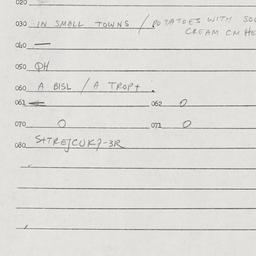 020
030 IN SMALL TOWNS / POTATOES WITH SOU
CREAM CM HE
040 —
050 OH
060 A BISL / A TROPT .
061 062 0
070 0 071 0
080 S+TREJCUK?-3R